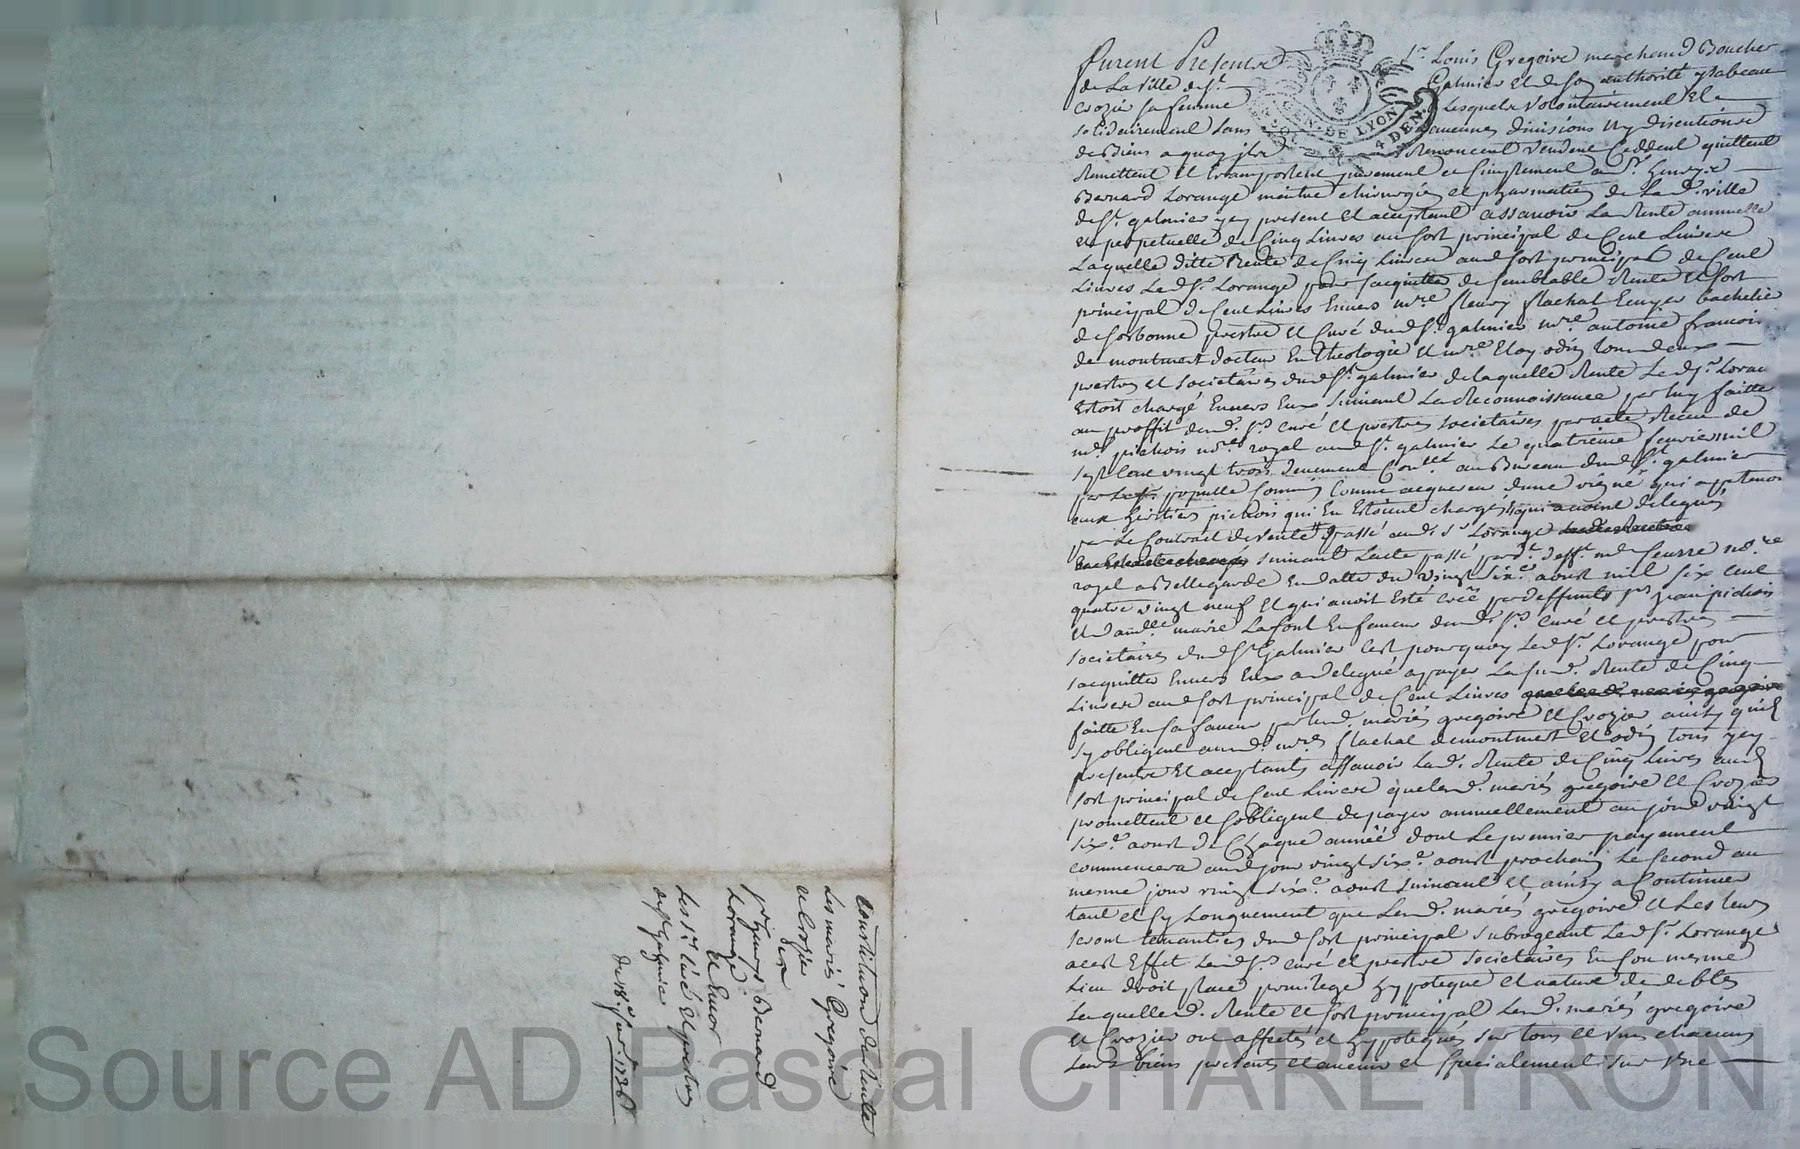 furent Presents Sr Louis Gregoire marchand Boucher
de La Ville de St Galmier et de son authorité ysabeau
Crozier sa femme Lesquels volontairement et
solidairement sans aucunes divisions ny discutions
de Biens a quoy ils Renoncent vendent Ceddent quittent
Remettent et transportent purement et simplement a Sr
Bernard Lorange maitre chirurgien et pharmatien de La d. ville
de St galmier yey present et acceptant assavoir La Rente annuelle
et perpetuelle de Cinq Livres au sort principal de Cent Livres
Laquelle ditte Rente de Cinq Livres aud sort principal de Cent
Livres Led Sr Lorange pour sacquitter de semblable Rente et sort
principal de Cent Livres Envers mre fleury flachat Ecuyer bachelier
de sorbonne prestre et Curé dud St galmier mre antoine francois
de montmert docteur En Theologie et mre Eloy odin tous deux
prestres et societaires dud St galmier de laquelle Rente Le d Sr Loran
Estoit chargé Envers Eux suivant La Reconnoissance par luy faitte
au proffit desd. Srs Curé et prestres societaires par acte Receu de
me pichois nore royal aud St galmier Le quatrieme fevrier mil
sept Cent vingt trois deuement Conllé au Bureau dud St galmier
par populle Commis Comme acquereur d'une vigne qui appartenoi
aux heritiers pichois qui En Estoient chargés
par Le Contract de vente passé aud. Sr Lorange
suivant Lacte passé par deft. me nore
royal a Bellegarde En datte du vingt six.e aoust mil six Cent
quatre vingt neuf et qui avoit Esté creé par deffunts Jean pichois
et damlle marie Lafont En faveur desd. Srs Curé et prestres
societaires dud St Galmier Cest pourquoy Led Sr. Lorange pour
sacquitter Envers Eux a delegué a payer La susd. Rente de Cinq
Livres aud sort principal de Cent Livres
faitte En sa faveur par lesd. mariés gregoire et Crozier ainsy quils
sy obligent auxd mres flachat demontmert et odin tous yey
presents et acceptants assavoir Lad. Rente de Cinq Livres aud
sort principal de Cent Livres que lesd. mariés gregoire et Crozier
promettent et sobligent de payer annuellement au jour vingt
six.e aoust de Chaque année dont Le premier payement
commencera aud jour vingt six.e aoust prochain Le second au
mesme jour vingt six.e aoust suivant et ainsy a Continuer
tant et sy Longuement que Lesd. mariés gregoire et Les leurs
seront tenantiers dud sort principal subrogeant Led Sr. Lorange
acest Effet Lesd Srs. curé et prestres societaires En son mesme
Lieu droit place privilege hypoteque et nature de debtes
Lesquelles d. Rente et sort principal Lesd. mariés gregoire
et Crozier ont affectés et hypotequés sur tous et uns chacuns
Leurs biens presents et avenir et specialement sur une
GEN. DE LYON
4 DEN.
Constitution de Rente
Les mariés Gregoire
et Crozier
Bernard
Lorange
et Envers
Les Srs Curé et prestres
de St Galmier
de 18e 1726
Source AD Pascal CHAREYRON